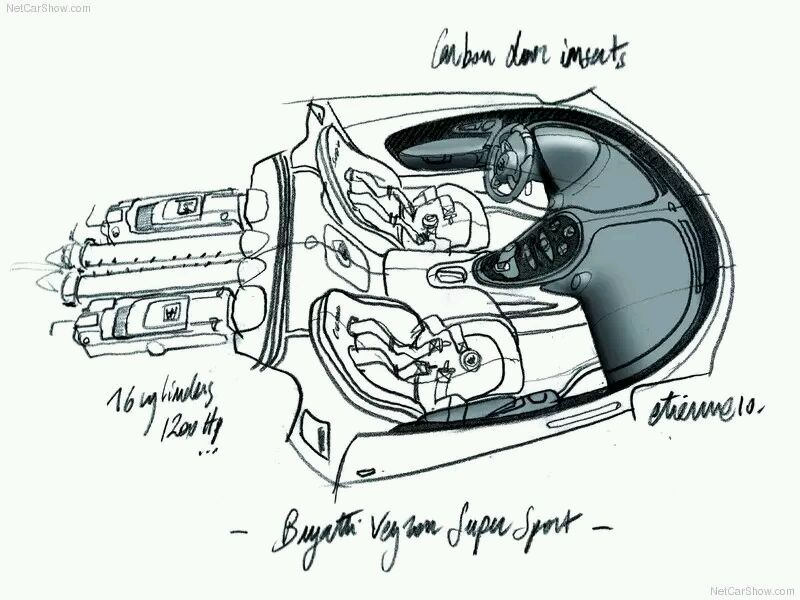 NetCarShow.com
Carbon door inserts
16 cylinders
1200 Hp
...
etienne 10.
- Bugatti Veyron Super Sport -
NetCarShow.com